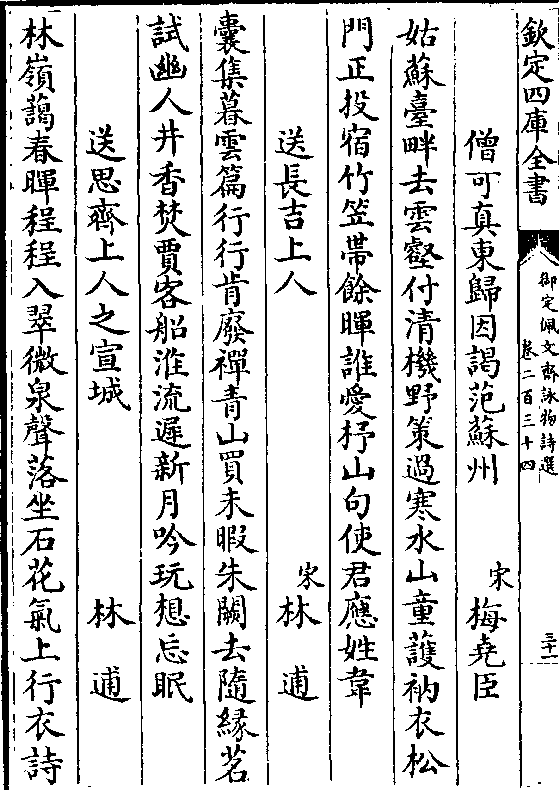 欽定四庫全書
御定佩文齋詠物詩選
卷二百三十四
三十一
僧可真東歸因謁范蘇州
宋梅堯臣
姑蘇臺畔去雲壑付清機野策過寒水山童護衲衣松
門正投宿竹笠帶餘暉誰愛杼山句使君應姓韋
送長吉上人
宋林逋
囊集暮雲篇行行肯廢禪青山買未暇朱闕去隨緣茗
試幽人井香焚賈客船淮流遲新月吟玩想忘眠
送思齊上人之宣城
林逋
林嶺藹春暉程程入翠微泉聲落坐石花氣上行衣詩